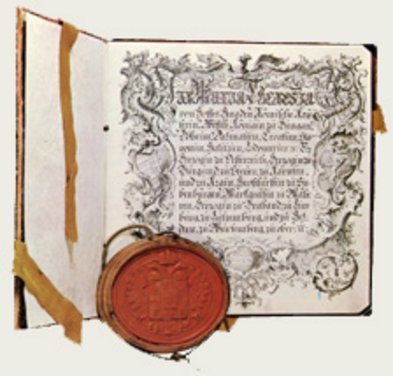 Wir Maria Theresia
von Gottes Gnaden Römische Kai
serin, Wittib, Königin zu Hungarn,
Böheim, Dalmatien, Croatien, Sla
vonien, Galizien, Lodomerien Erz
Herzogin zu Oesterreich, Herzogin zu
Burgund, zu Steyer, zu Kärnten,
und zu Krain, Großfürstin zu Sie
benbürgen, Marggräfin zu Mäh
ren, Herzogin zu Braband, zu Lim
burg, zu Luxemburg, und zu Gel
dern, zu Würtemberg, zu Ober